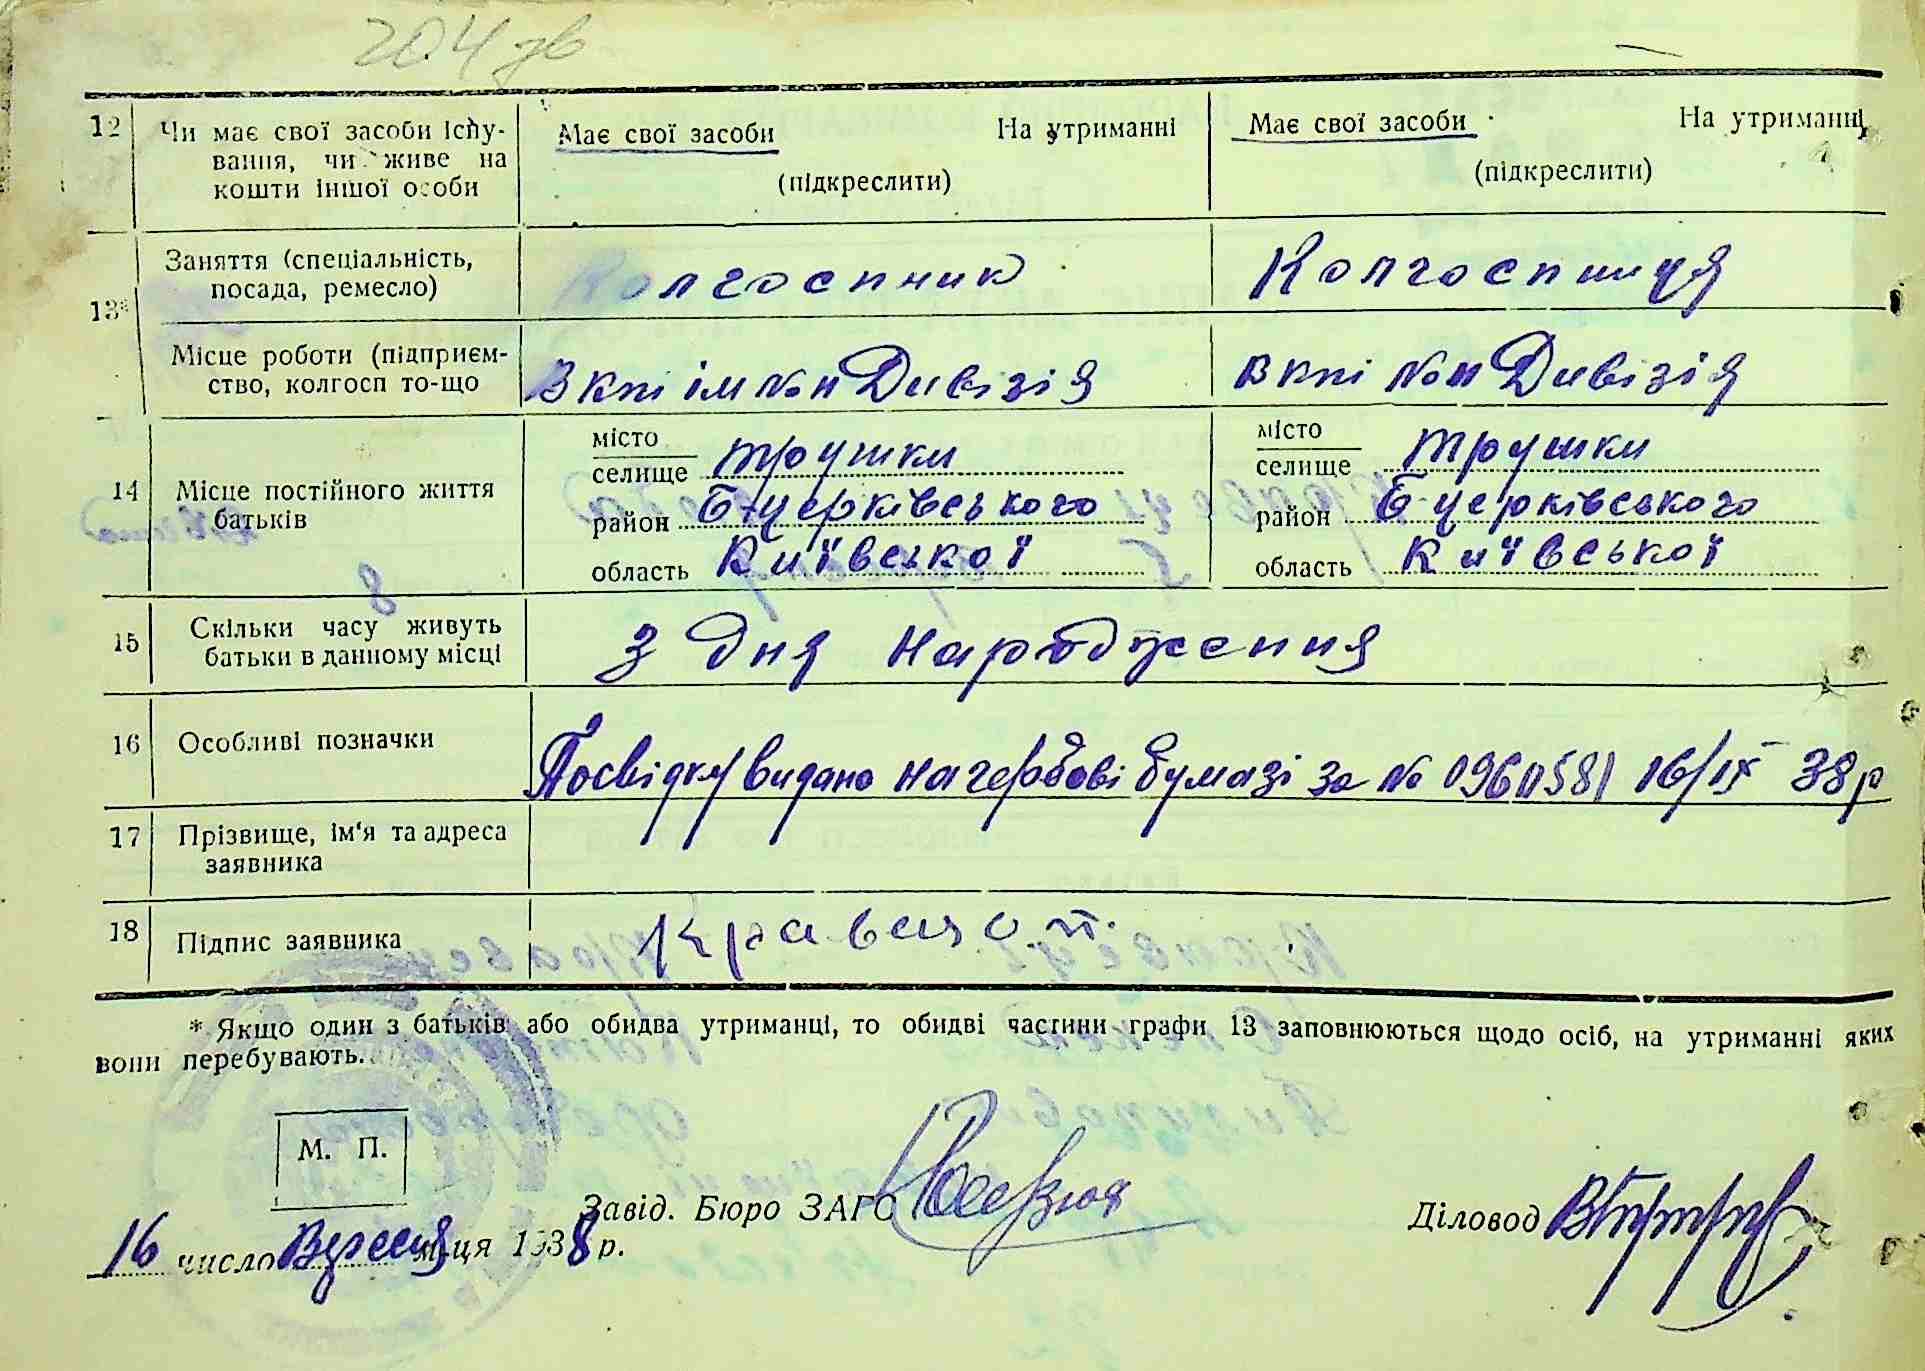 204 зв
12 Чи має свої засоби існу- Має свої засоби На утриманні Має свої засоби На утриманні
вання, чи живе на
кошти іншої особи (підкреслити) (підкреслити)
13* Заняття (спеціальність, Колгоспник Колгоспниця
посада, ремесло)
Місце роботи (підприєм- В кпі ім №н Дивізія в кпі №н Дивізія
ство, колгосп то-що
14 Місце постійного життя місто місто
батьків селище Трушки селище Трушки
район Б-церківського район Б-церківського
область Київської область Київської
15 Скільки часу живуть З дня народження
батьки в данному місці
16 Особливі позначки Посвідку видано на гербові бумазі за № 0960581 16/IX 38р
17 Прізвище, ім'я та адреса
заявника
18 Підпис заявника Кравець О. П.
* Якщо один з батьків або обидва утриманці, то обидві частини графи 13 заповнюються щодо осіб, на утриманні яких
вони перебувають.
М. П.
Завід. Бюро ЗАГС Діловод
16 число Вересня м-ця 1938 р.